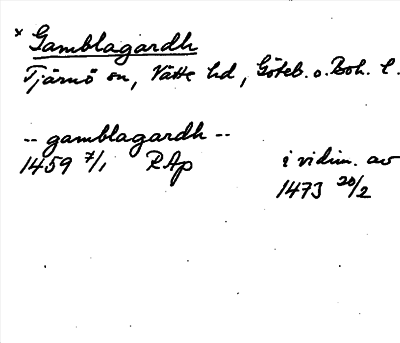 * Gamblagardh
Tjärnö sn, Vätte hd, Göteb. o. Boh. l.
-- gamblagardh --
1459 7/1 RAp i vidim. av
1473 20/2